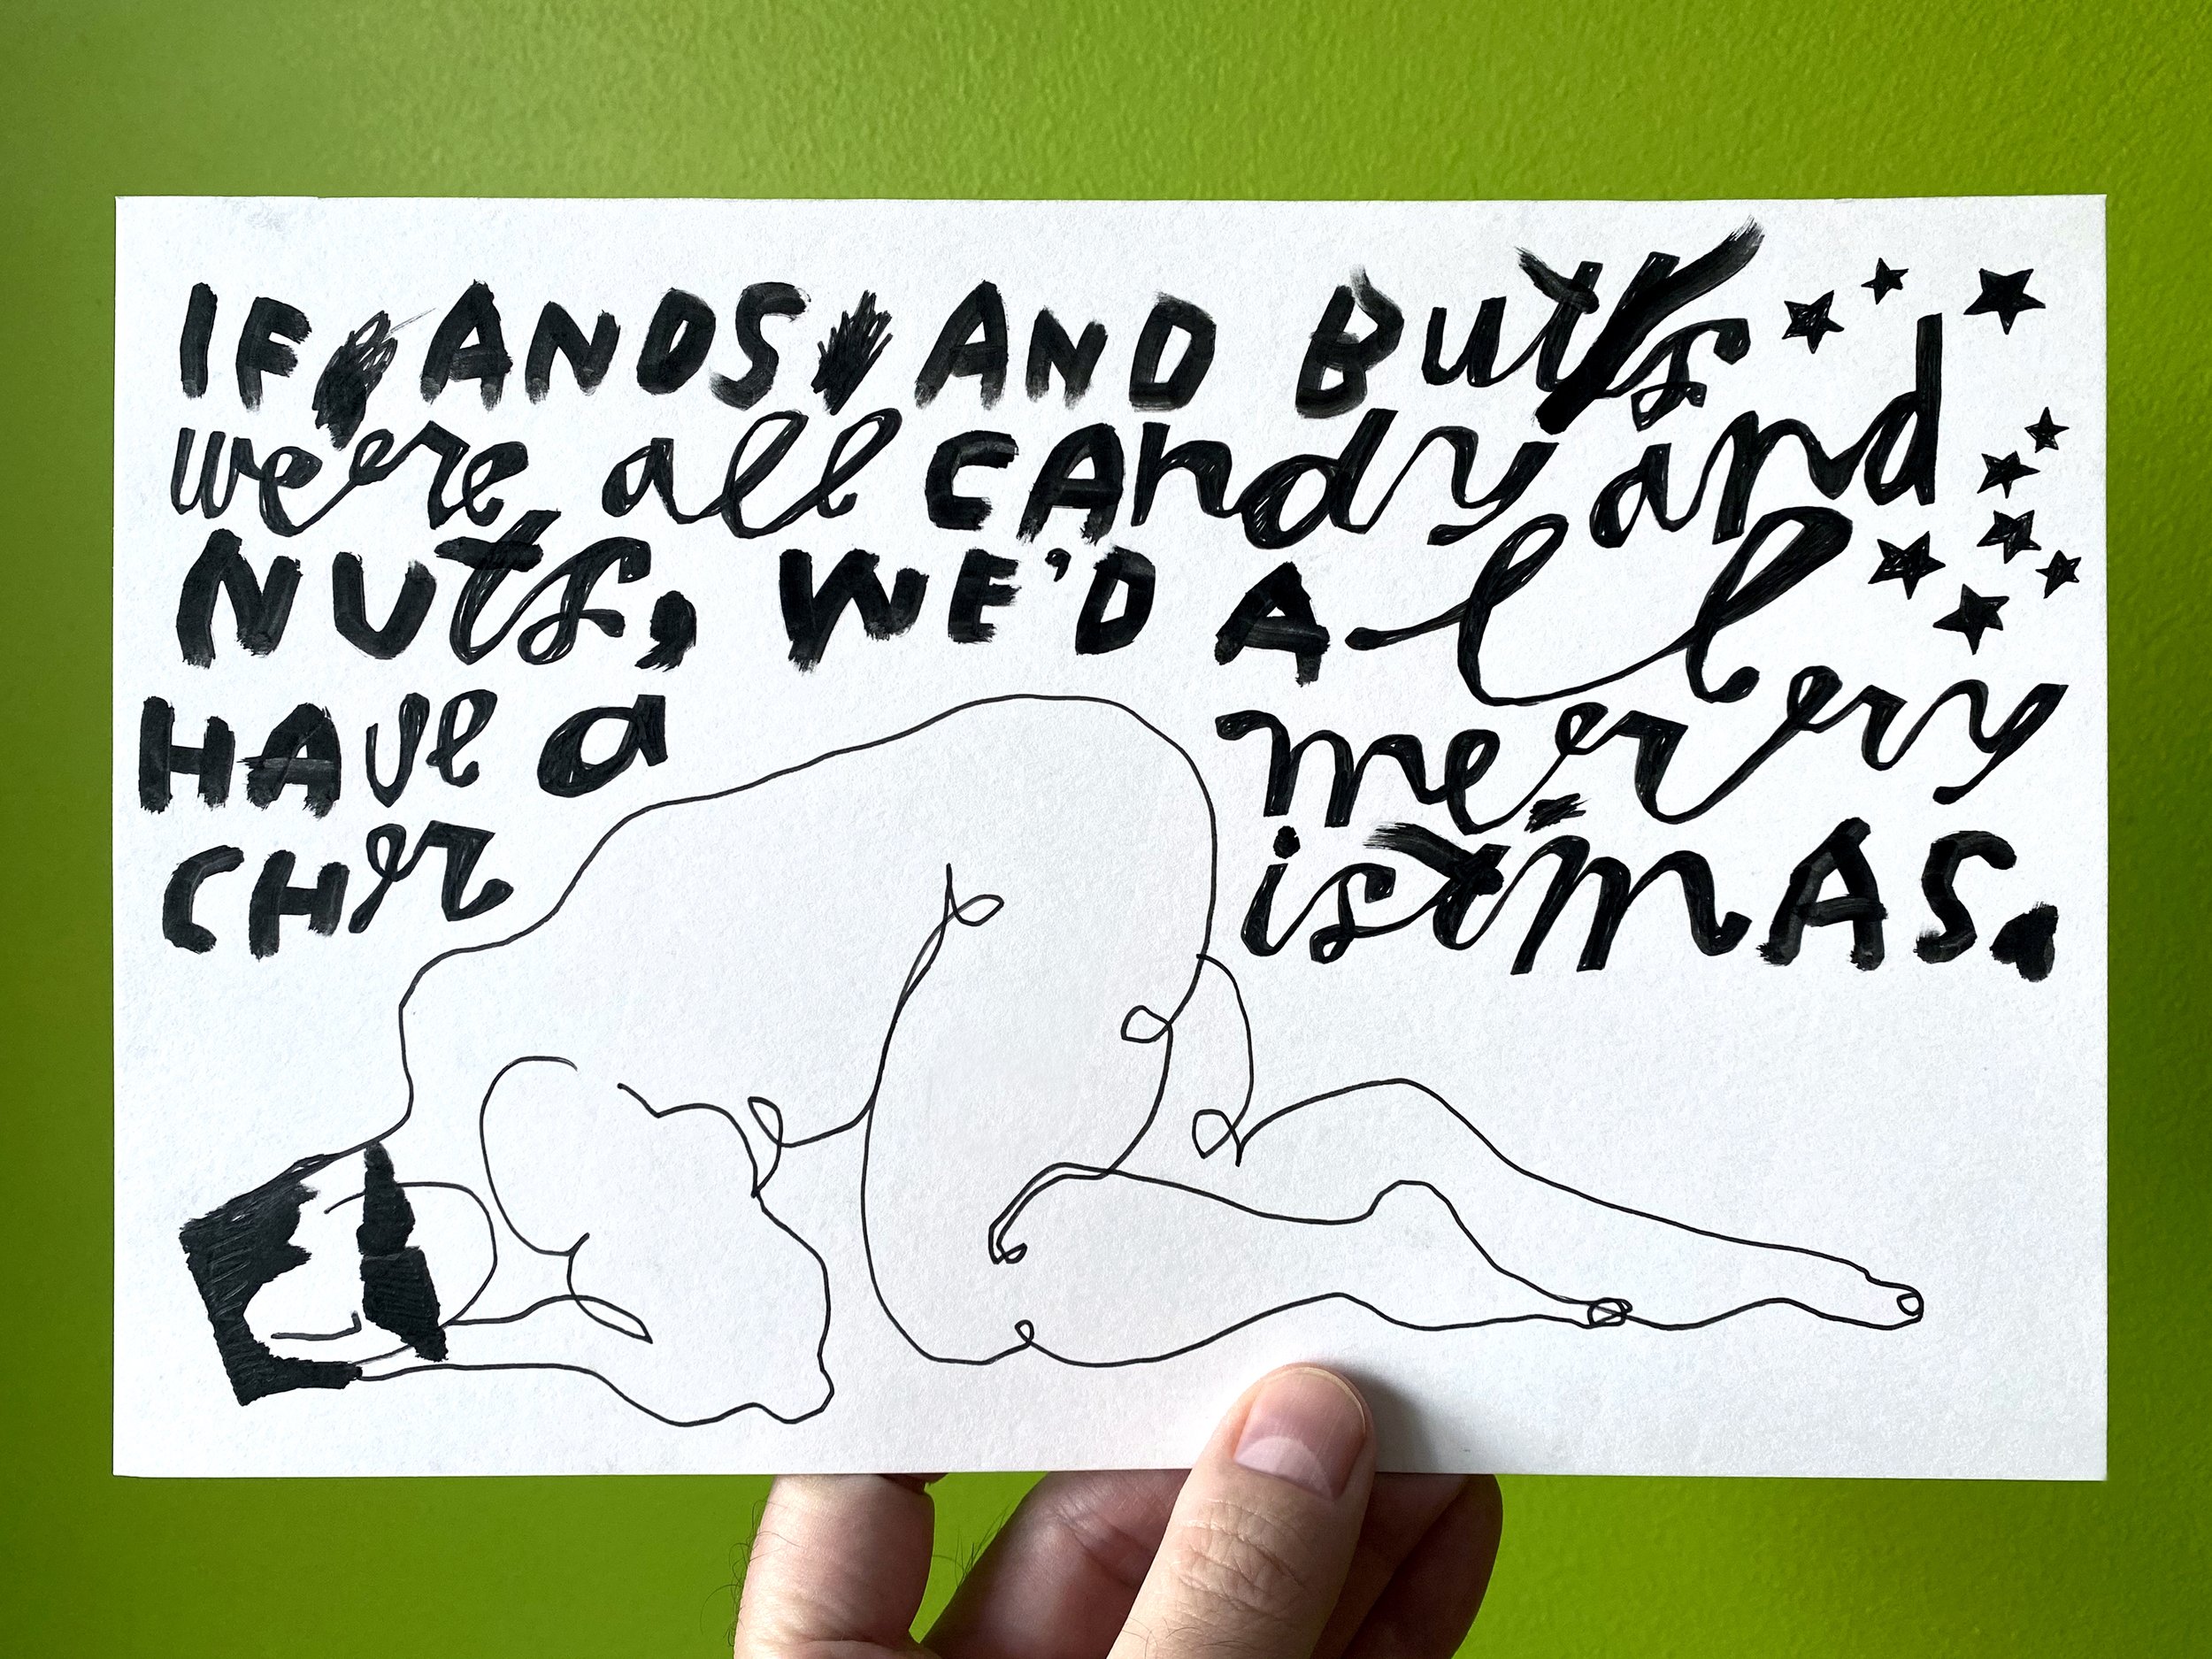 IF ANDS AND Buts
were all CAndy and
NUts, WE'D All
HAve a merry
CHristmAS.